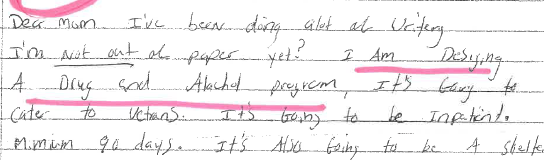 Dear Mom I've been doing alot of Writeng
I'm not out of paper yet? I Am Desijng
A Drug and Alachol program, It's Gony to
Cater to Vetrans. It's Going to be Inpatient.
Minmium 90 days. It's Also Going to be A Shelte